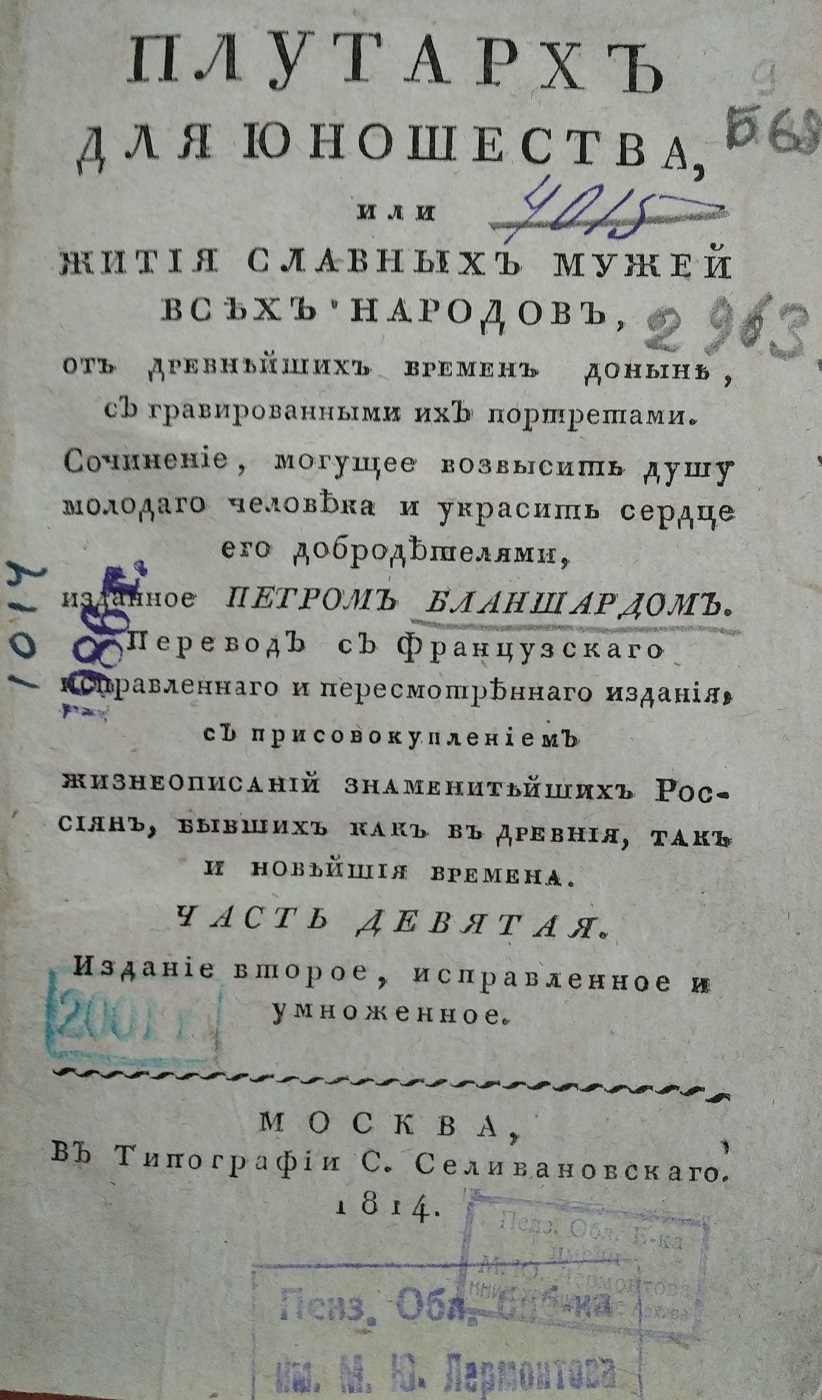 ПЛУТАРХЪ
ДЛЯ ЮНОШЕСТВА,
Б 68
или
4015
ЖИТІЯ СЛАВНЫХЪ МУЖЕЙ
ВСѢХЪ НАРОДОВЪ,
2963
отъ древнѣйшихъ временъ донынѣ,
съ гравированными ихъ портретами.
Сочиненіе, могущее возвысить душу
молодаго человѣка и украсить сердце
его добродѣтелями,
изданное ПЕТРОМЪ БЛАНШАРДОМЪ.
1014
1986 г.
Переводъ съ Французскаго
исправленнаго и пересмотрѣннаго изданія,
съ присовокупленіемъ
жизнеописаній знаменитѣйшихъ Рос-
сіянъ, бывшихъ какъ въ древнія, такъ
и новѣйшія времена.
ЧАСТЬ ДЕВЯТАЯ.
Изданіе второе, исправленное и
умноженное.
2001 г.
МОСКВА,
Въ Типографіи С. Селивановскаго.
1814.
Пенз. Обл. Б-ка
имени
М. Ю. Лермонтова
Пенз. Обл. биб-ка
им. М. Ю. Лермонтова